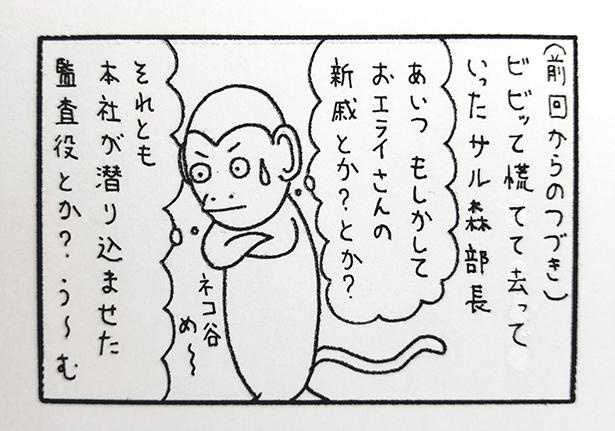 （前回からのつづき）
ビビッて慌てて去って
いったサル森部長
あいつ もしかして
おエライさんの
新戚とか？とか？
ネコ谷
め〜
それとも
本社が潜り込ませた
監査役とか？う〜む